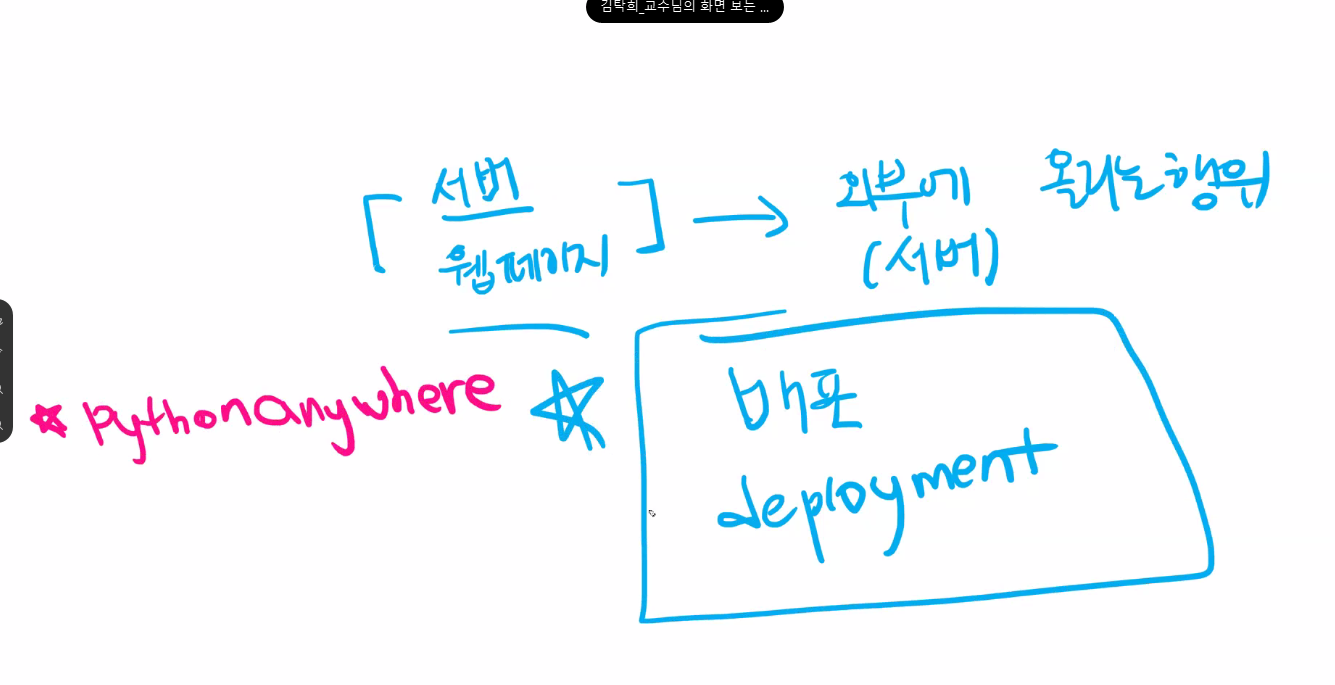 김탁희_교수님의 화면 보는 ...
서버
웹페이지
외부에 올리는 행위
(서버)
pythonanywhere
배포
deployment